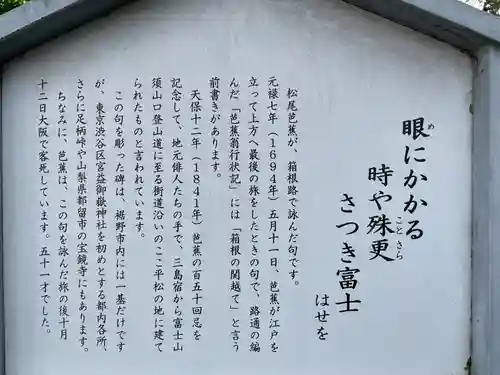 眼にかかる
め
時や殊更
ことさら
さつき富士
はせを
松尾芭蕉が、箱根路で詠んだ句です。
元禄七年(1694年)五月十一日、芭蕉が江戸を
立って上方へ最後の旅をしたときの句で、路通の編
んだ「芭蕉翁行状記」には「箱根の関越て」と言う
前書きがあります。
天保十二年(1841年)芭蕉の百五十回忌を
記念して、地元俳人たちの手で、三島宿から富士山
須山口登山道に至る街道沿いのここ平松の地に建て
られたものと言われています。
この句を彫った碑は、裾野市内には一基だけです
が、東京渋谷区宮益御嶽神社を初めとする都内各所、
さらに足柄峠や山梨県都留市の宝鏡寺にもあります。
ちなみに、芭蕉は、この句を詠んだ旅の後十月
十二日大阪で客死しています。五十一才でした。